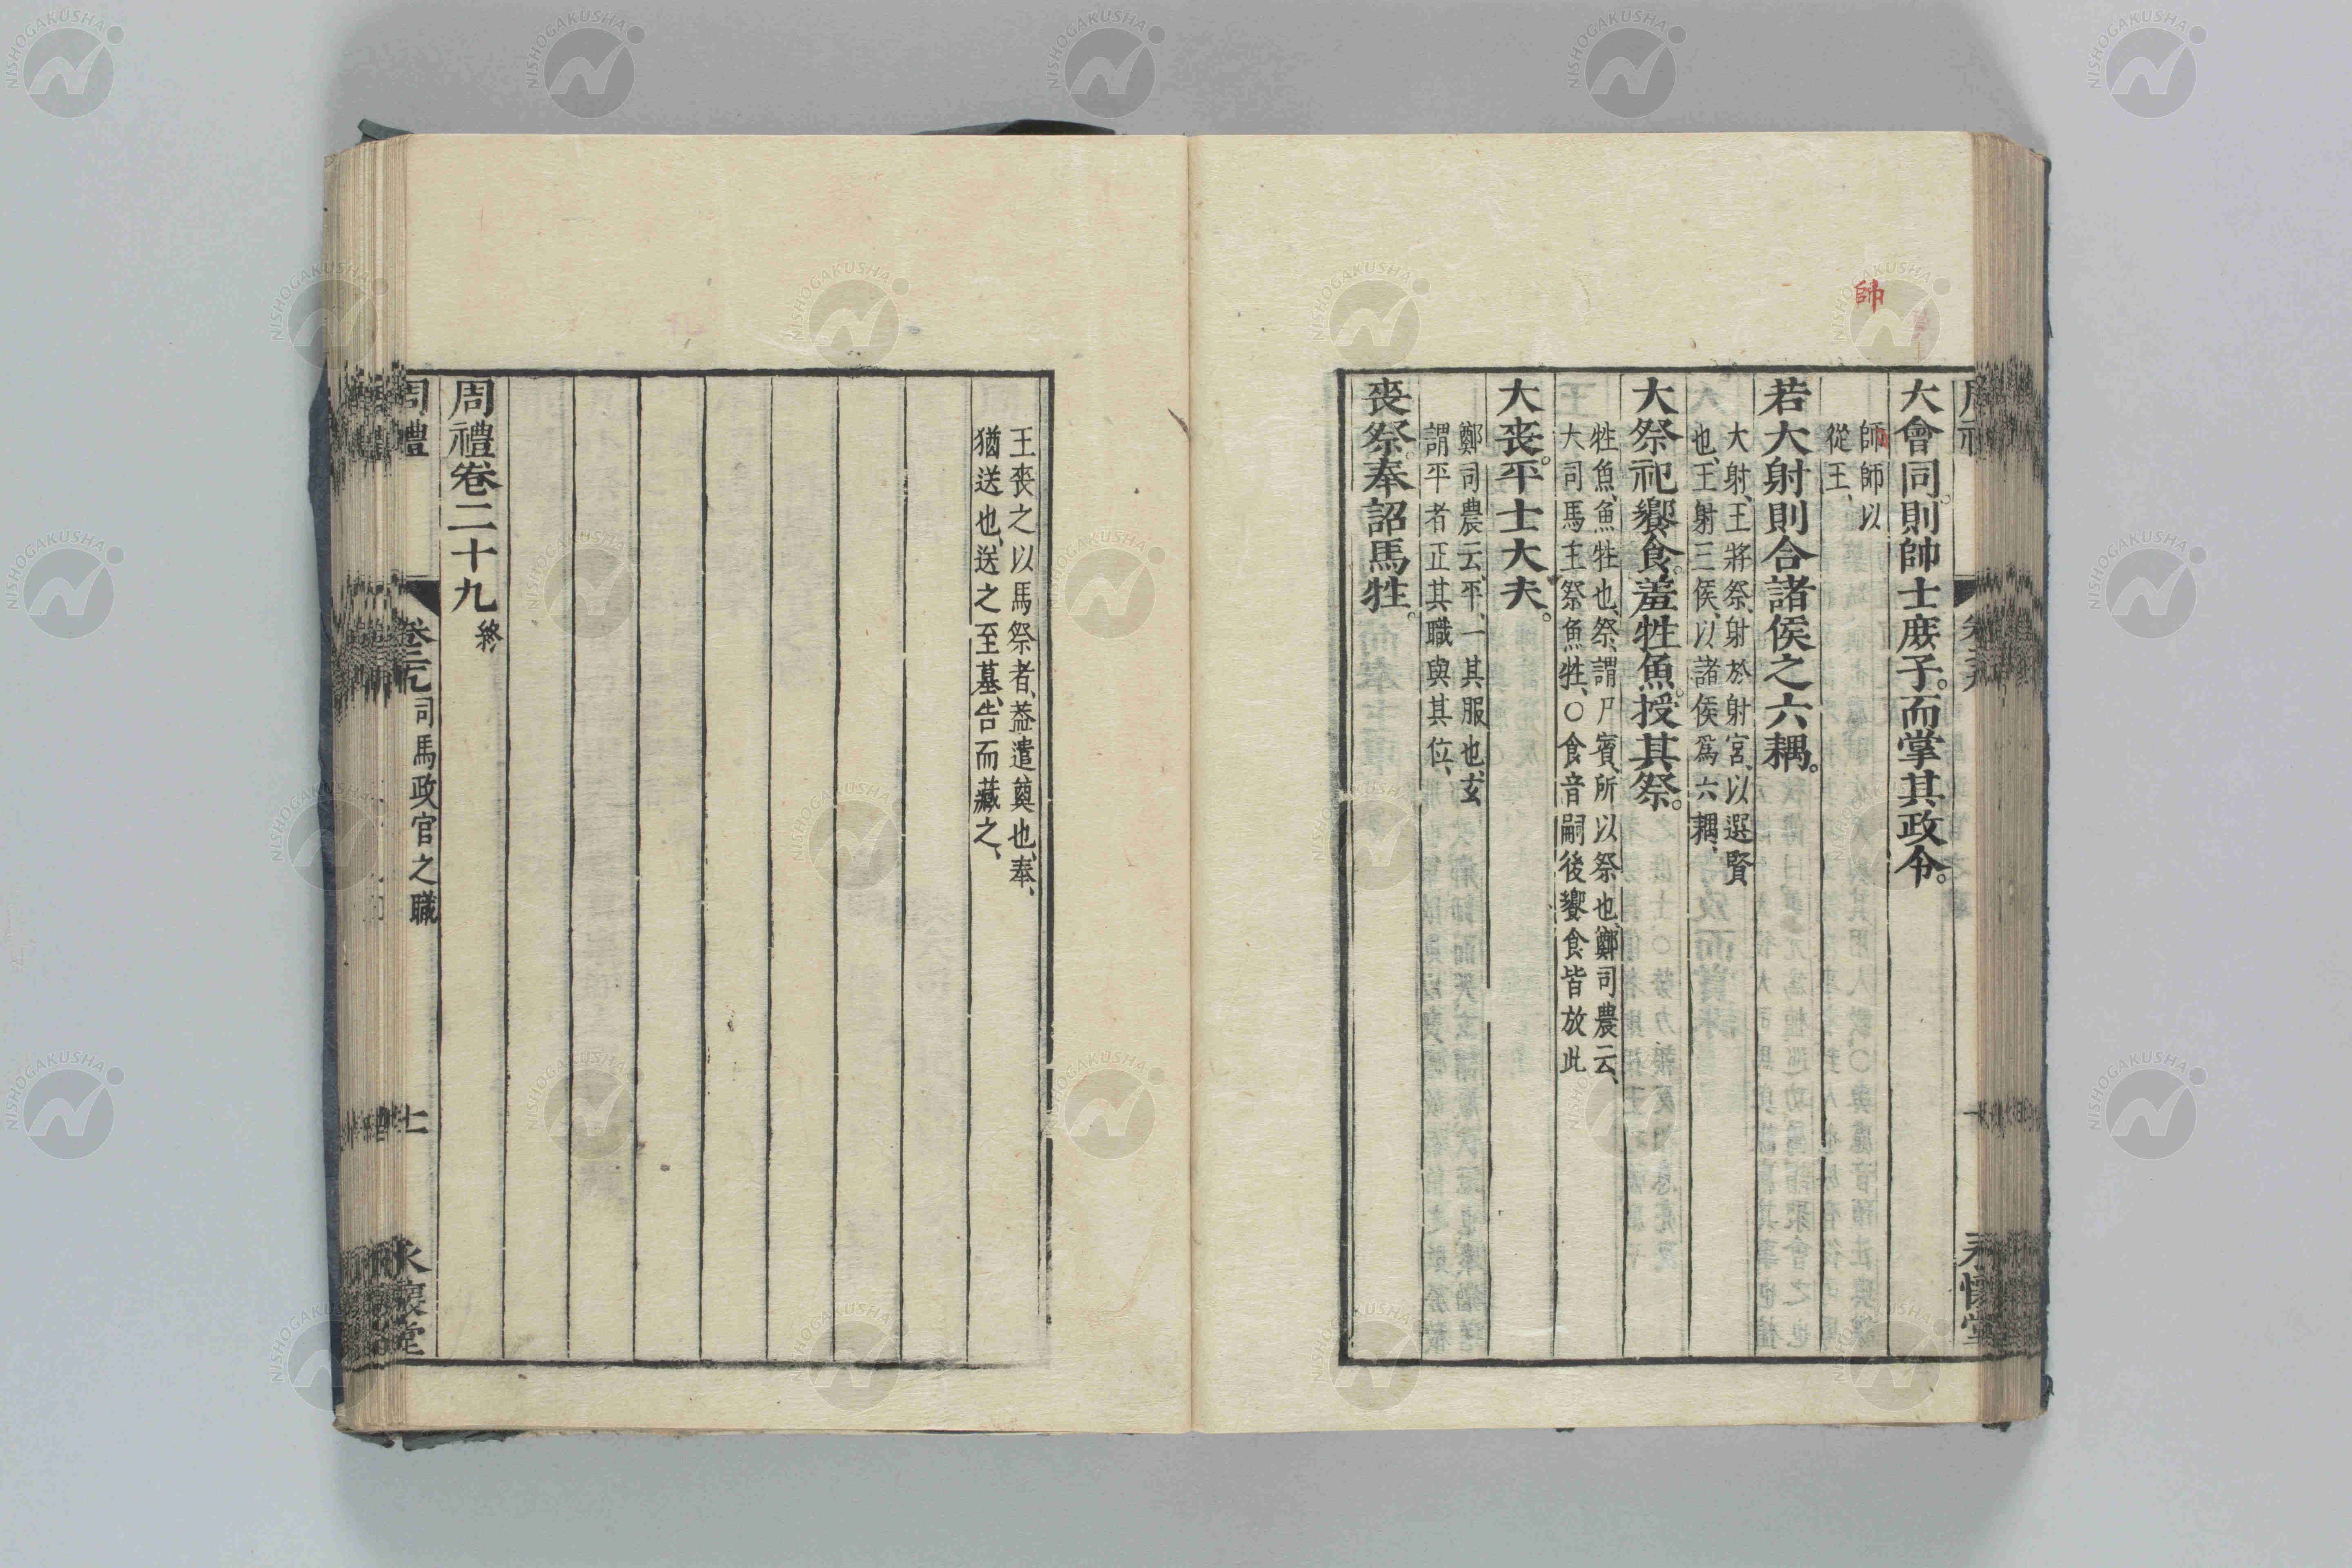 帥
大會同。則帥士庶子。而掌其政令。
師師以
從王、
若大射則合諸侯之六耦。
大射、王將祭、射於射宮、以選賢
也、王射三侯、以諸侯爲六耦、
大祭祀饗食。羞牲魚。授其祭。
牲魚、魚牲也、祭、謂尸賓、所以祭也、鄭司農云、
大司馬主祭魚牲、○食音嗣後饗食皆放此
大喪。平士大夫。
鄭司農云、平、一其服也、玄
謂平者正其職與其位、
喪祭。奉詔馬牲。
王喪之以馬祭者、葢遣奠也、奉、
猶送也、送之至墓、告而藏之、
周禮卷二十九 終
周禮 卷二十九 司馬政官之職 七 永懷堂
NISHOGAKUSHA